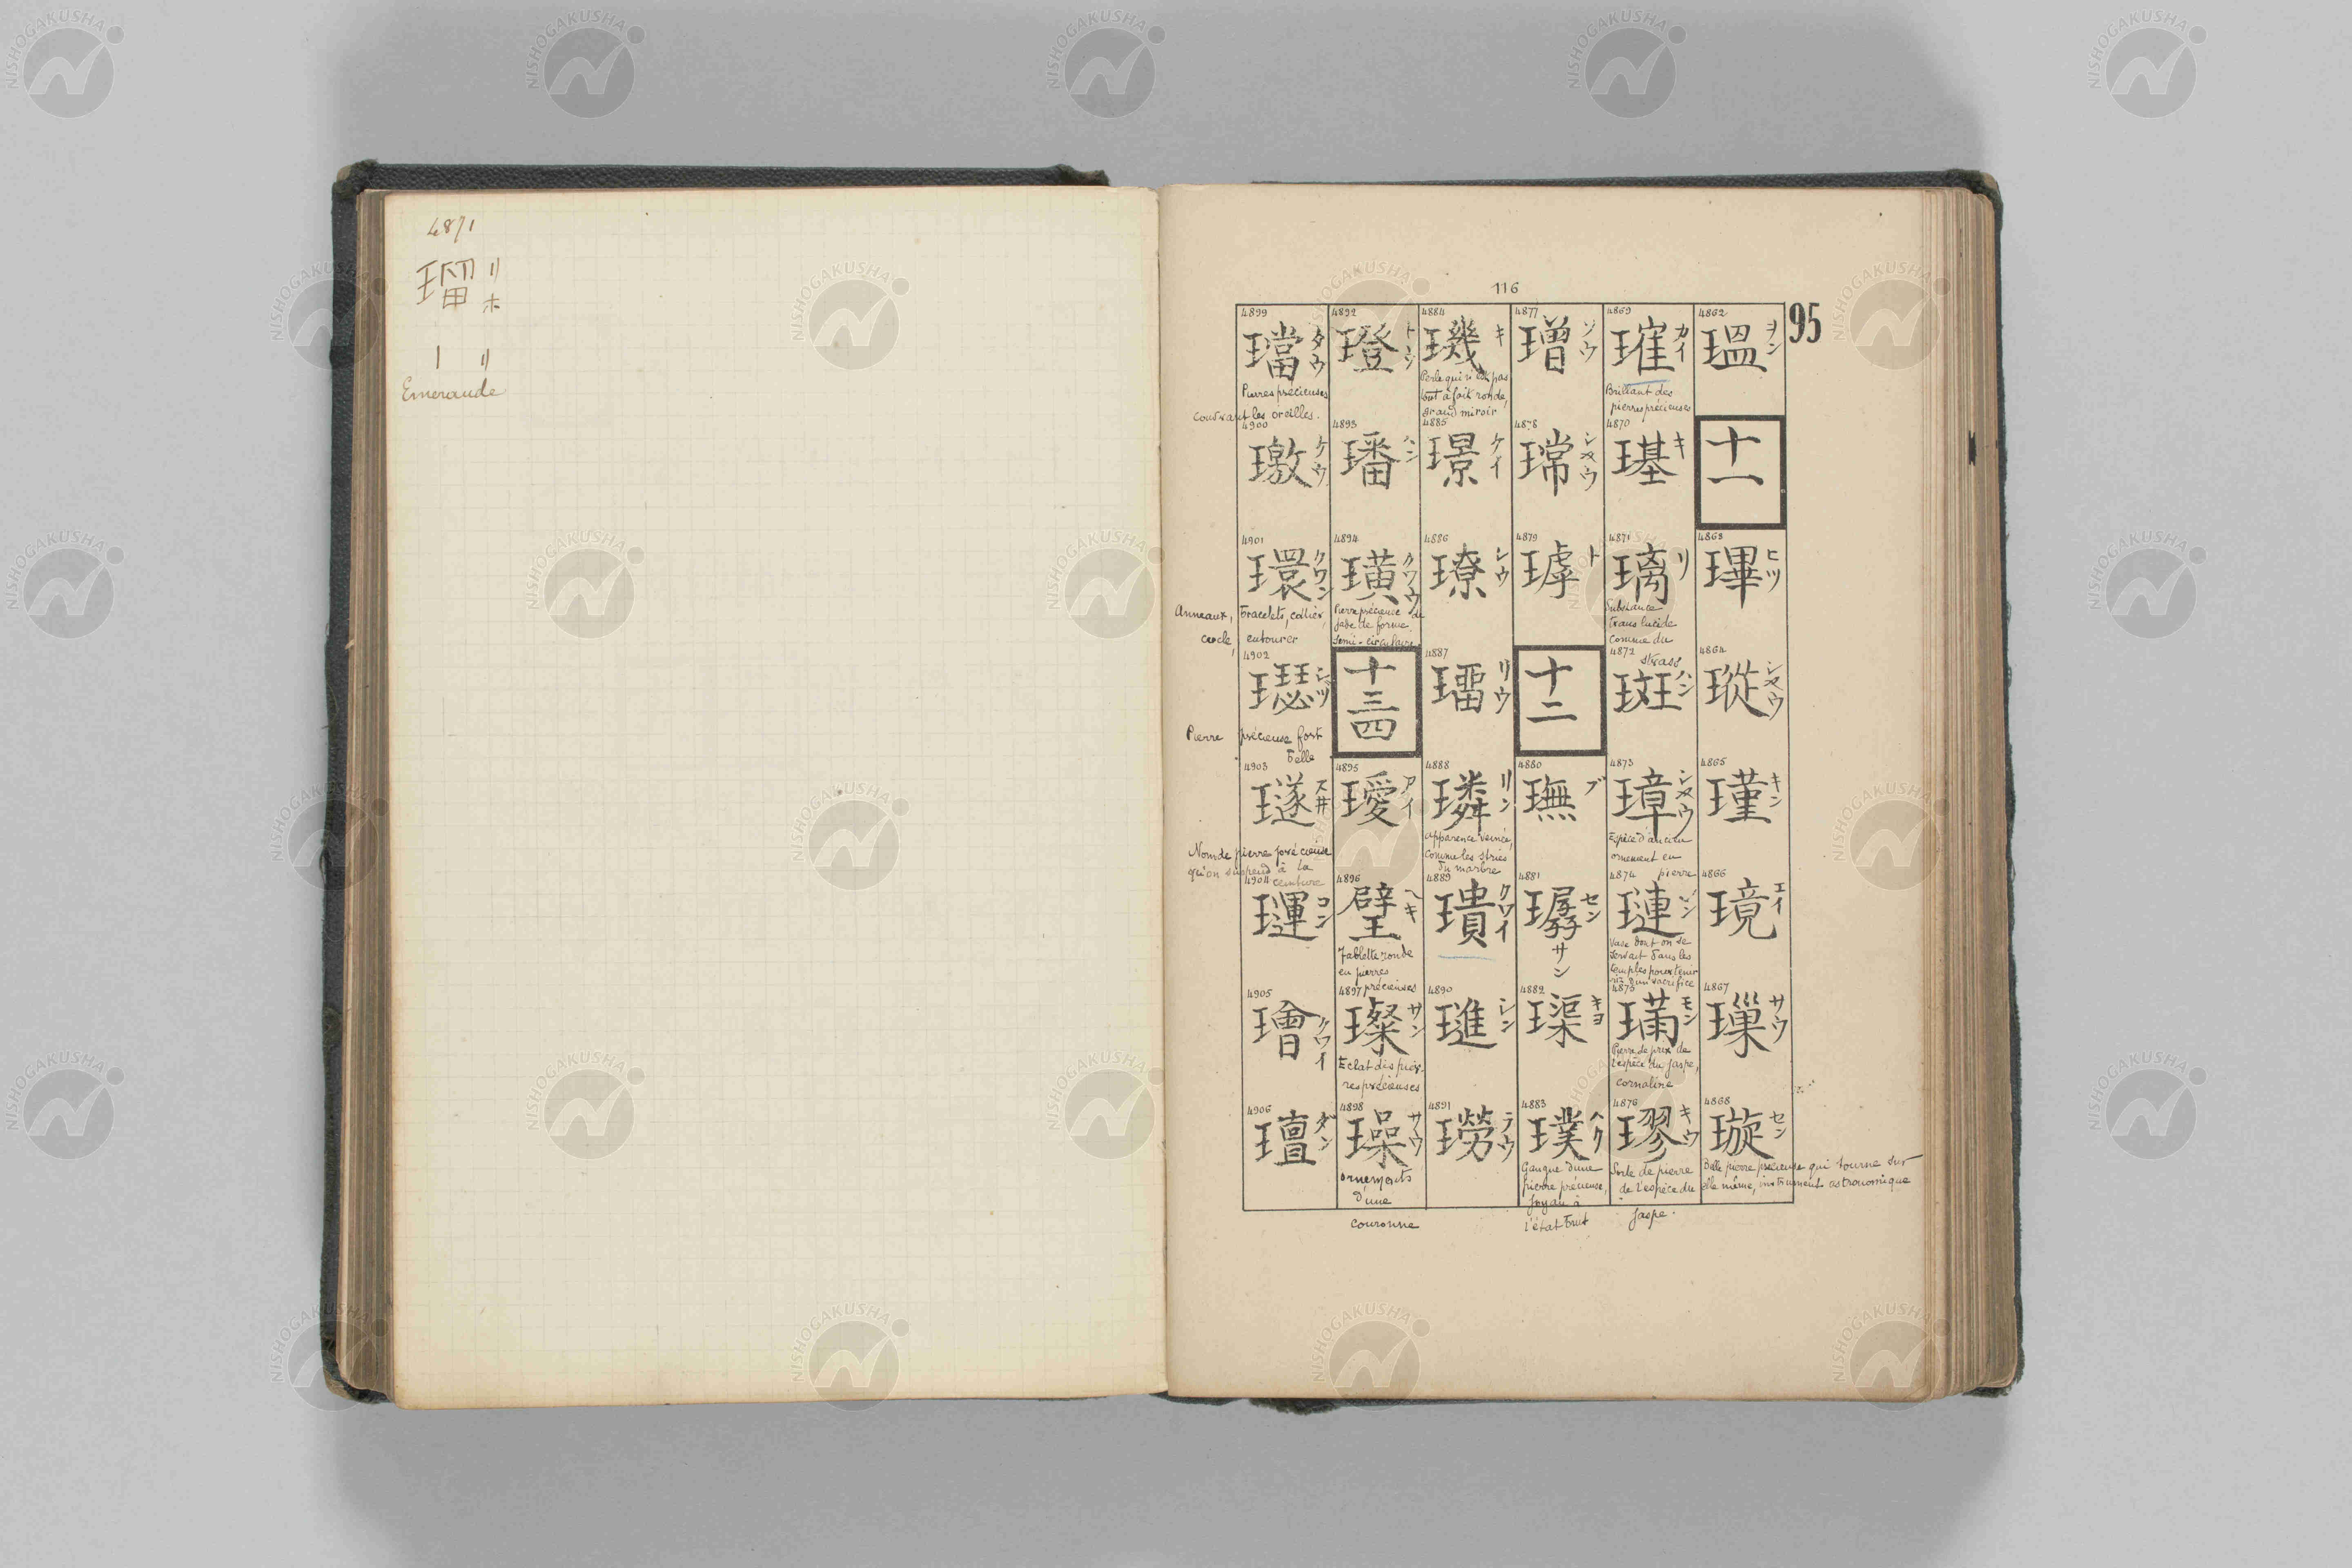 4871
瑠 リ
ホ
〡 リ
Emeraude
116
95
4862
瑥 ヲン
十一
4863
琿 ヒツ
4864
瑽 シヤウ
4865
瑾 キン
4866
璄 エイ
4867
璅 サウ
4868
璇 セン
Belle pierre précieuse qui tourne sur
elle même, instrument astronomique
4869
璀 カイ
Brillant des
pierres précieuses
4870
璂 キ
4871
璃 リ
Substance
translucide
comme du
strass
4872
斑 ハン
4873
璋 シヤウ
Espèce d'ancien
ornement en
pierre
4874
璉
Vase dont on se
servait dans les
temples pour tenir
4875
璊 モン
Pierre de prix de
l'espèce du jaspe,
cornaline
4876
璆 キウ
Sorte de pierre
de l'espèce du
jaspe.
4877
璔 ゾウ
4878
瑺 シヤウ
4879
ト
十二
4880
璑 ブ
4881
セン
サン
4882
璖 キヨ
4883
璞 ヘク
Gangue d'une
pierre précieuse,
Joyau à
l'état brut
4884
璣 キ
Perle qui n'est pas
tout à fait ronde,
grand miroir
4885
璟 ケイ
4886
璙 レウ
4887
リウ
4888
璘 リン
Apparence veinée,
comme les stries
du marbre
4889
璝 クワイ
4890
璡 シン
4891
璒 ラウ
4892
璒 トウ
4893
璠 ハン
4894
璜 クワウ
Pierre précieuse de
jade de forme
semi-circulaire
十三四
4895
璦 アイ
4896
璧 ヘキ
Tablette ronde
en pierres
précieuses
4897
璨 サン
Eclat des pier-
res précieuses
4898
璪 サウ
ornements
d'une
couronne
4899
璫 タウ
Pierres précieuses
couvrant les oreilles.
4900
璬 ケウ
4901
環 クワン
Anneaux, bracelets, collier,
cercle, entourer
4902
璱 シツ
Pierre précieuse fort
belle
4903
璲 スヰ
Nom de pierre précieuse
qu'on suspend à la
ceinture
4904
コン
4905
璯 クワイ
4906
璮 ダン